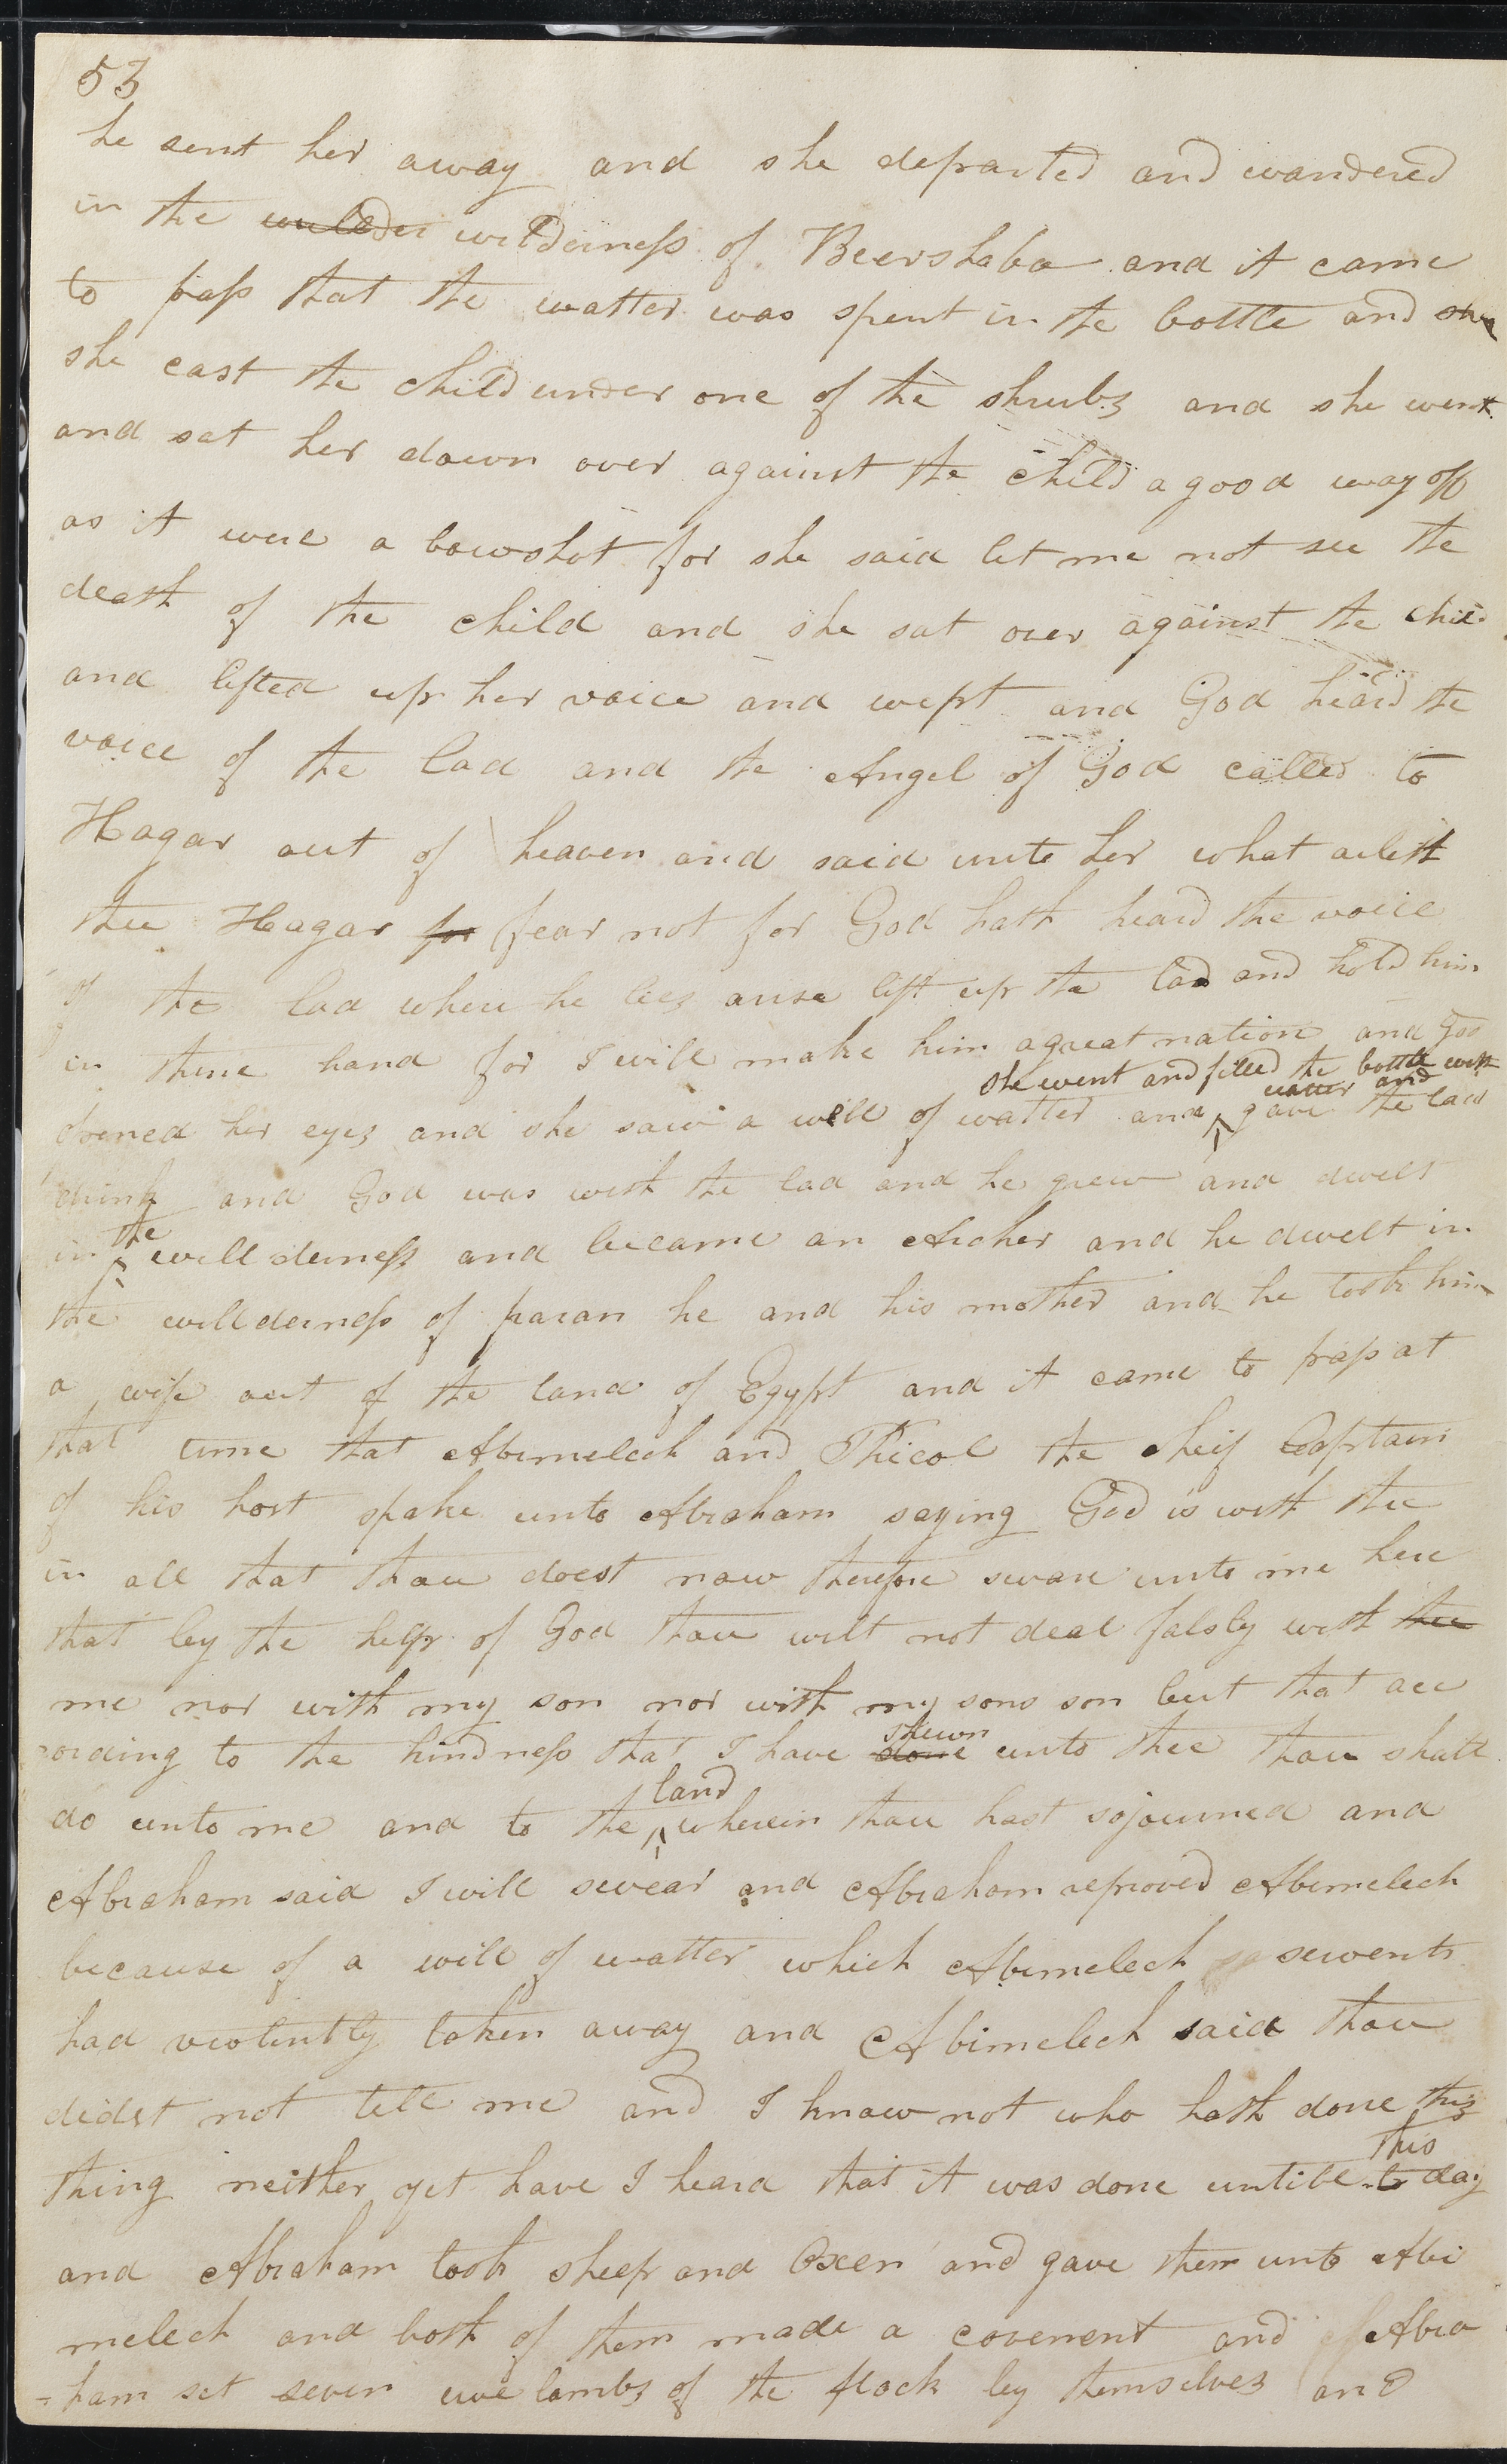 53
he sent her away and she departed and wandered
in the wilder wilderness of Beershaba and it came
to pass that the watter was spent in the bottle and she
she cast the child under one of the shrubs and she went
and sat her down over against the child a good way off
as it were a bowshot for she said let me not see the
death of the child and she sat over against the child
and lifted up her voice and wept and God heard the
voice of the lad and the Angel of God called to
Hagar out of heaven and said unto her what aileth
thee Hagar for fear not for God hath heard the voice
of the lad where he lies arise lift up the lad and hold him
in thine hand for I will make him a great nation and God
she went and filled the bottle with
watter and
opened her eyes and she saw a well of watter and gave the lad
drink and God was with the lad and he grew and dwelt
the
in willderness and became an Archer and he dwelt in
the willderness of paran he and his mother and he took him
a wife out of the land of Egypt and it came to pass at
that time that Abimelech and Phicol the cheif Captain
of his host spake unto Abraham saying God is with thee
in all that thou doest now therefore sware unto me here
that by the help of God thou wilt not deal falsly with thee
me nor with my son nor with my sons son but that acc
cording to the kindness that I have done unto thee thou shalt
shewn
land
do unto me and to the wherein thou hast sojourned and
Abraham said I will swear and Abraham reproved Abimelech
because of a well of watter which Abimelech servents
had violently taken away and Abimelech said thou
didst not tell me and I know not who hath done this
this
thing neither yet have I heard that it was done untill to day
and Abraham took sheep and Oxen and gave them unto Abi
melech and both of them made a covenent and Abra
=ham set seven ewe lambs of the flock by themselves and